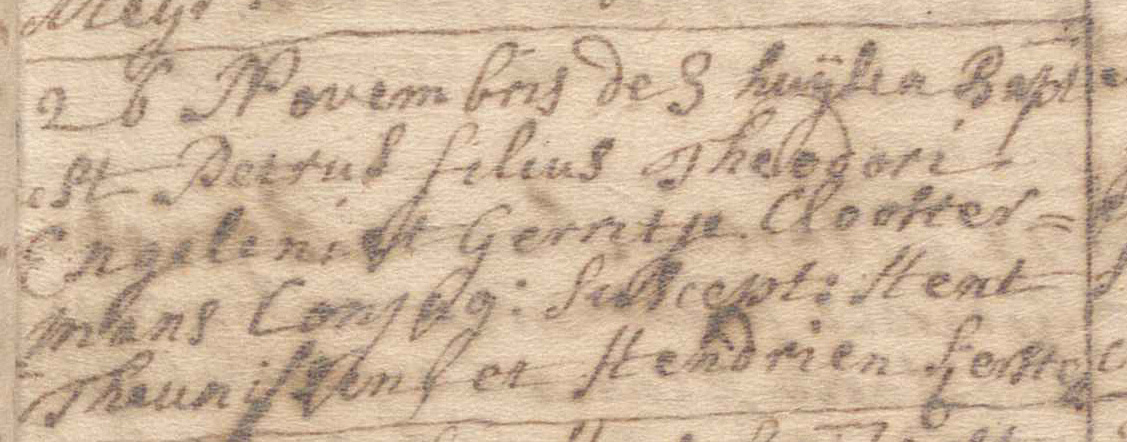 26 Novembris de Shuijsen Bapt
est Petrus filius Theodori
Engelen et Gerritje Clooster=
mans Conjug: Suscept: Hent
Theunissen et Hendrien